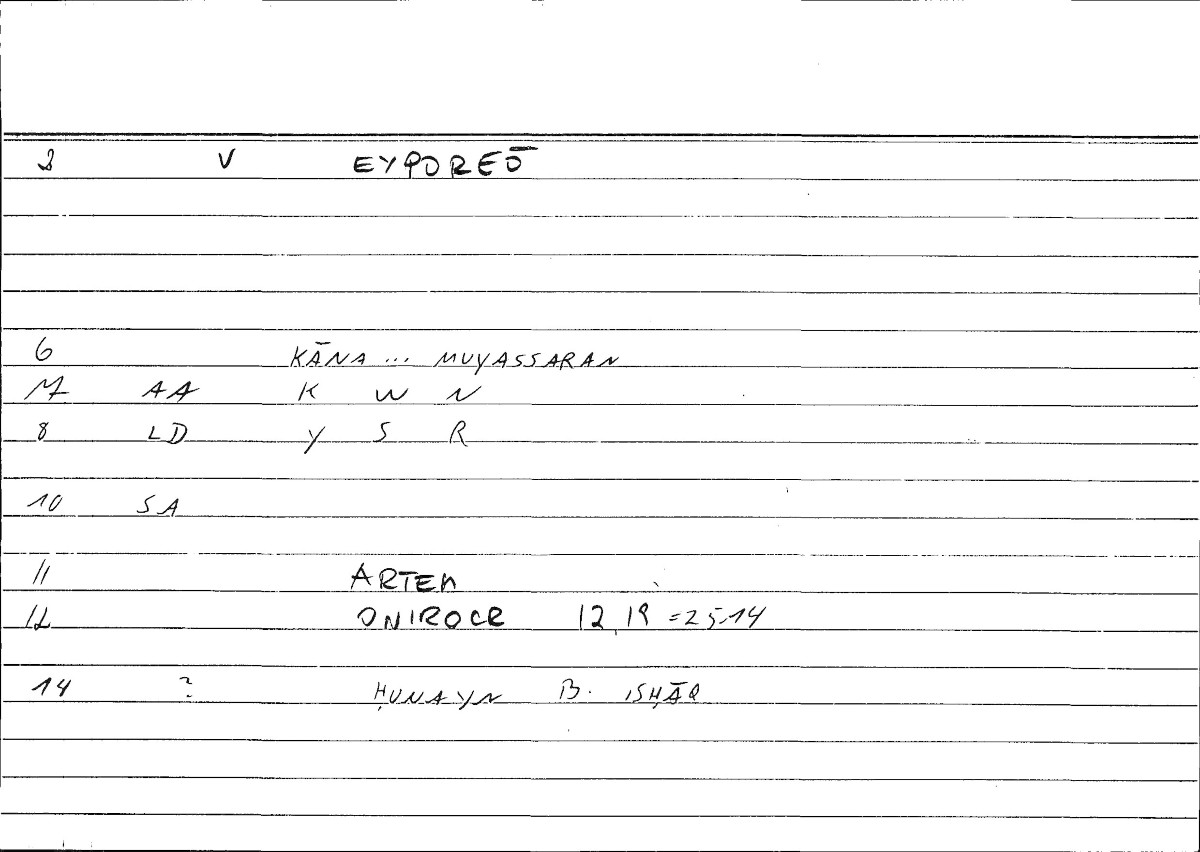 2 V EYPOREŌ
6 KĀNA ... MUYASSARAN
7 AA K W N
8 LD Y S R
10 SA
11 ARTEM
12 ONIROCR 12,19 = 25.14
14 ? ḤUNAYN B. ISḤĀQ